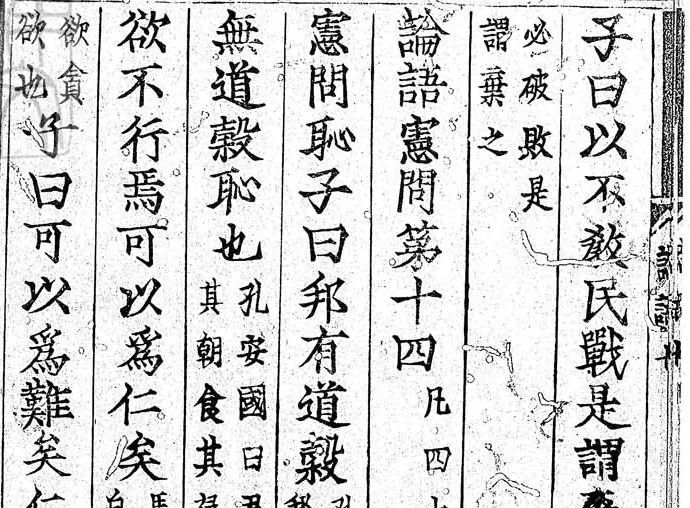 子曰以不敎民戰是謂
必破敗是
謂棄之
論語憲問第十四
凡四
憲問恥子曰邦有道榖
無道榖恥也
孔安國曰君
其朝食其
欲不行焉可以爲仁矣
欲貪
欲也
子曰可以爲難矣仁